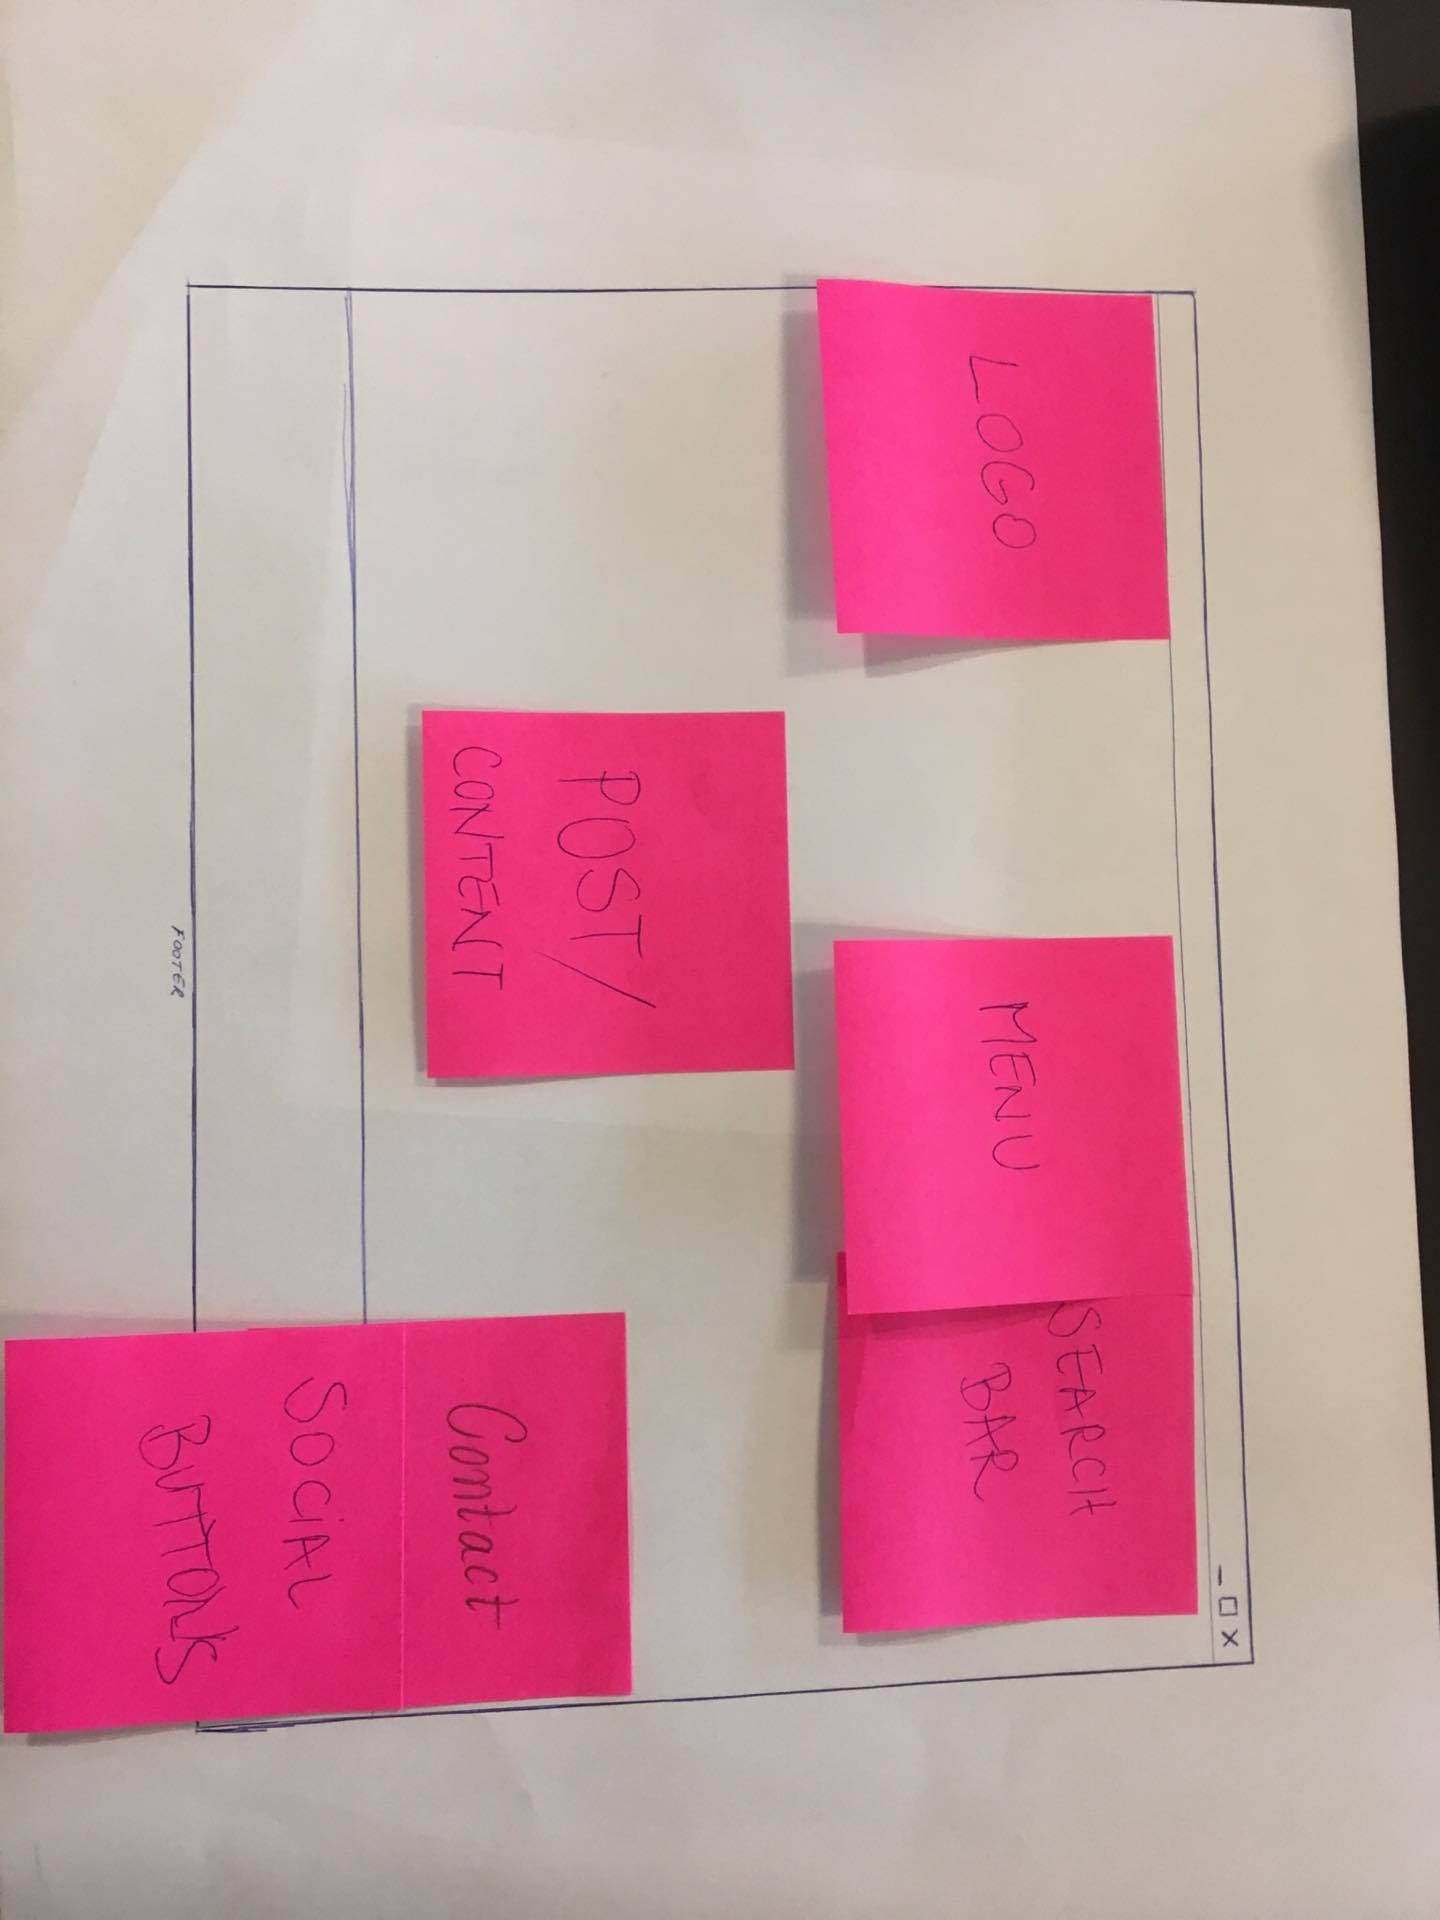 LOGO
MENU
SEARCH
BAR
POST/
CONTENT
Contact
SOCiAL
BUTTONS
FOOTER